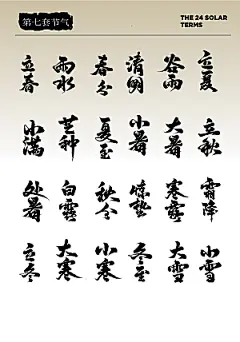 第七套节气
THE 24 SOLAR
TERMS
立春 雨水 春分 清明 谷雨 立夏
小满 芒种 夏至 小暑 大暑 立秋
处暑 白露 秋分 惊蛰 寒露 霜降
立冬 大寒 小寒 冬至 大雪 小雪